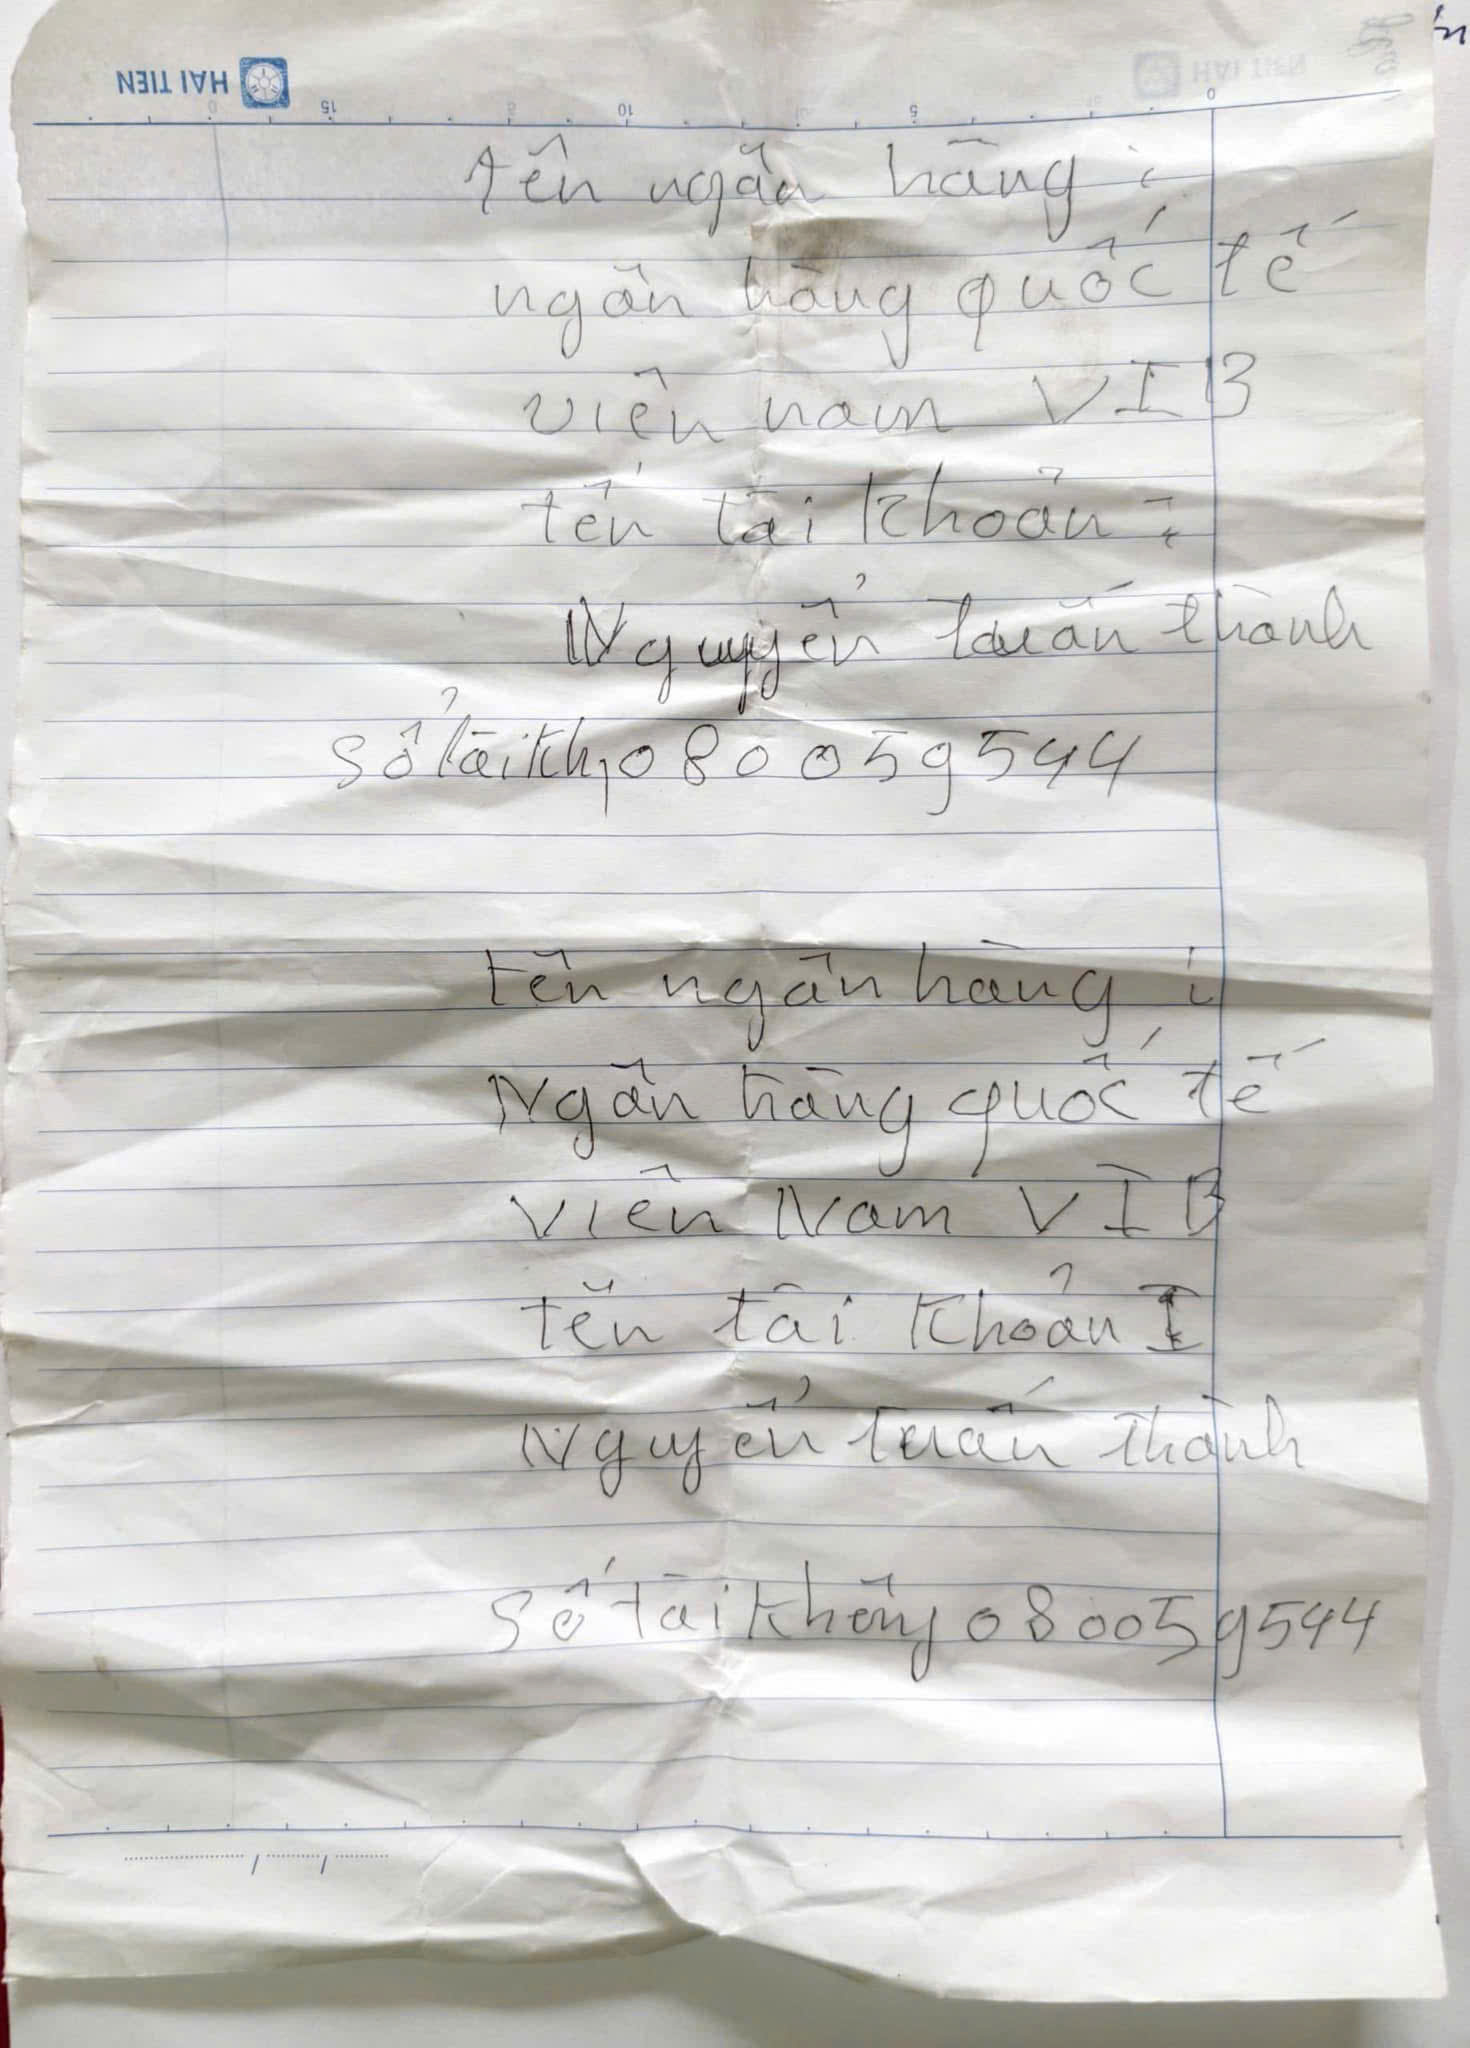 HẢI TIẾN
0 5 10 15
tên ngân hàng :
ngân hàng quốc tế
viên nam VIB
tến tài khoản :
Nguyyển tuấn thành
Sổ tài kh, 080059544
tên ngân hàng :
Ngân hàng quốc tế
Viên Nam VIB
tên tài khoản I
Nguyển tuấn thành
Số tài không 080059544